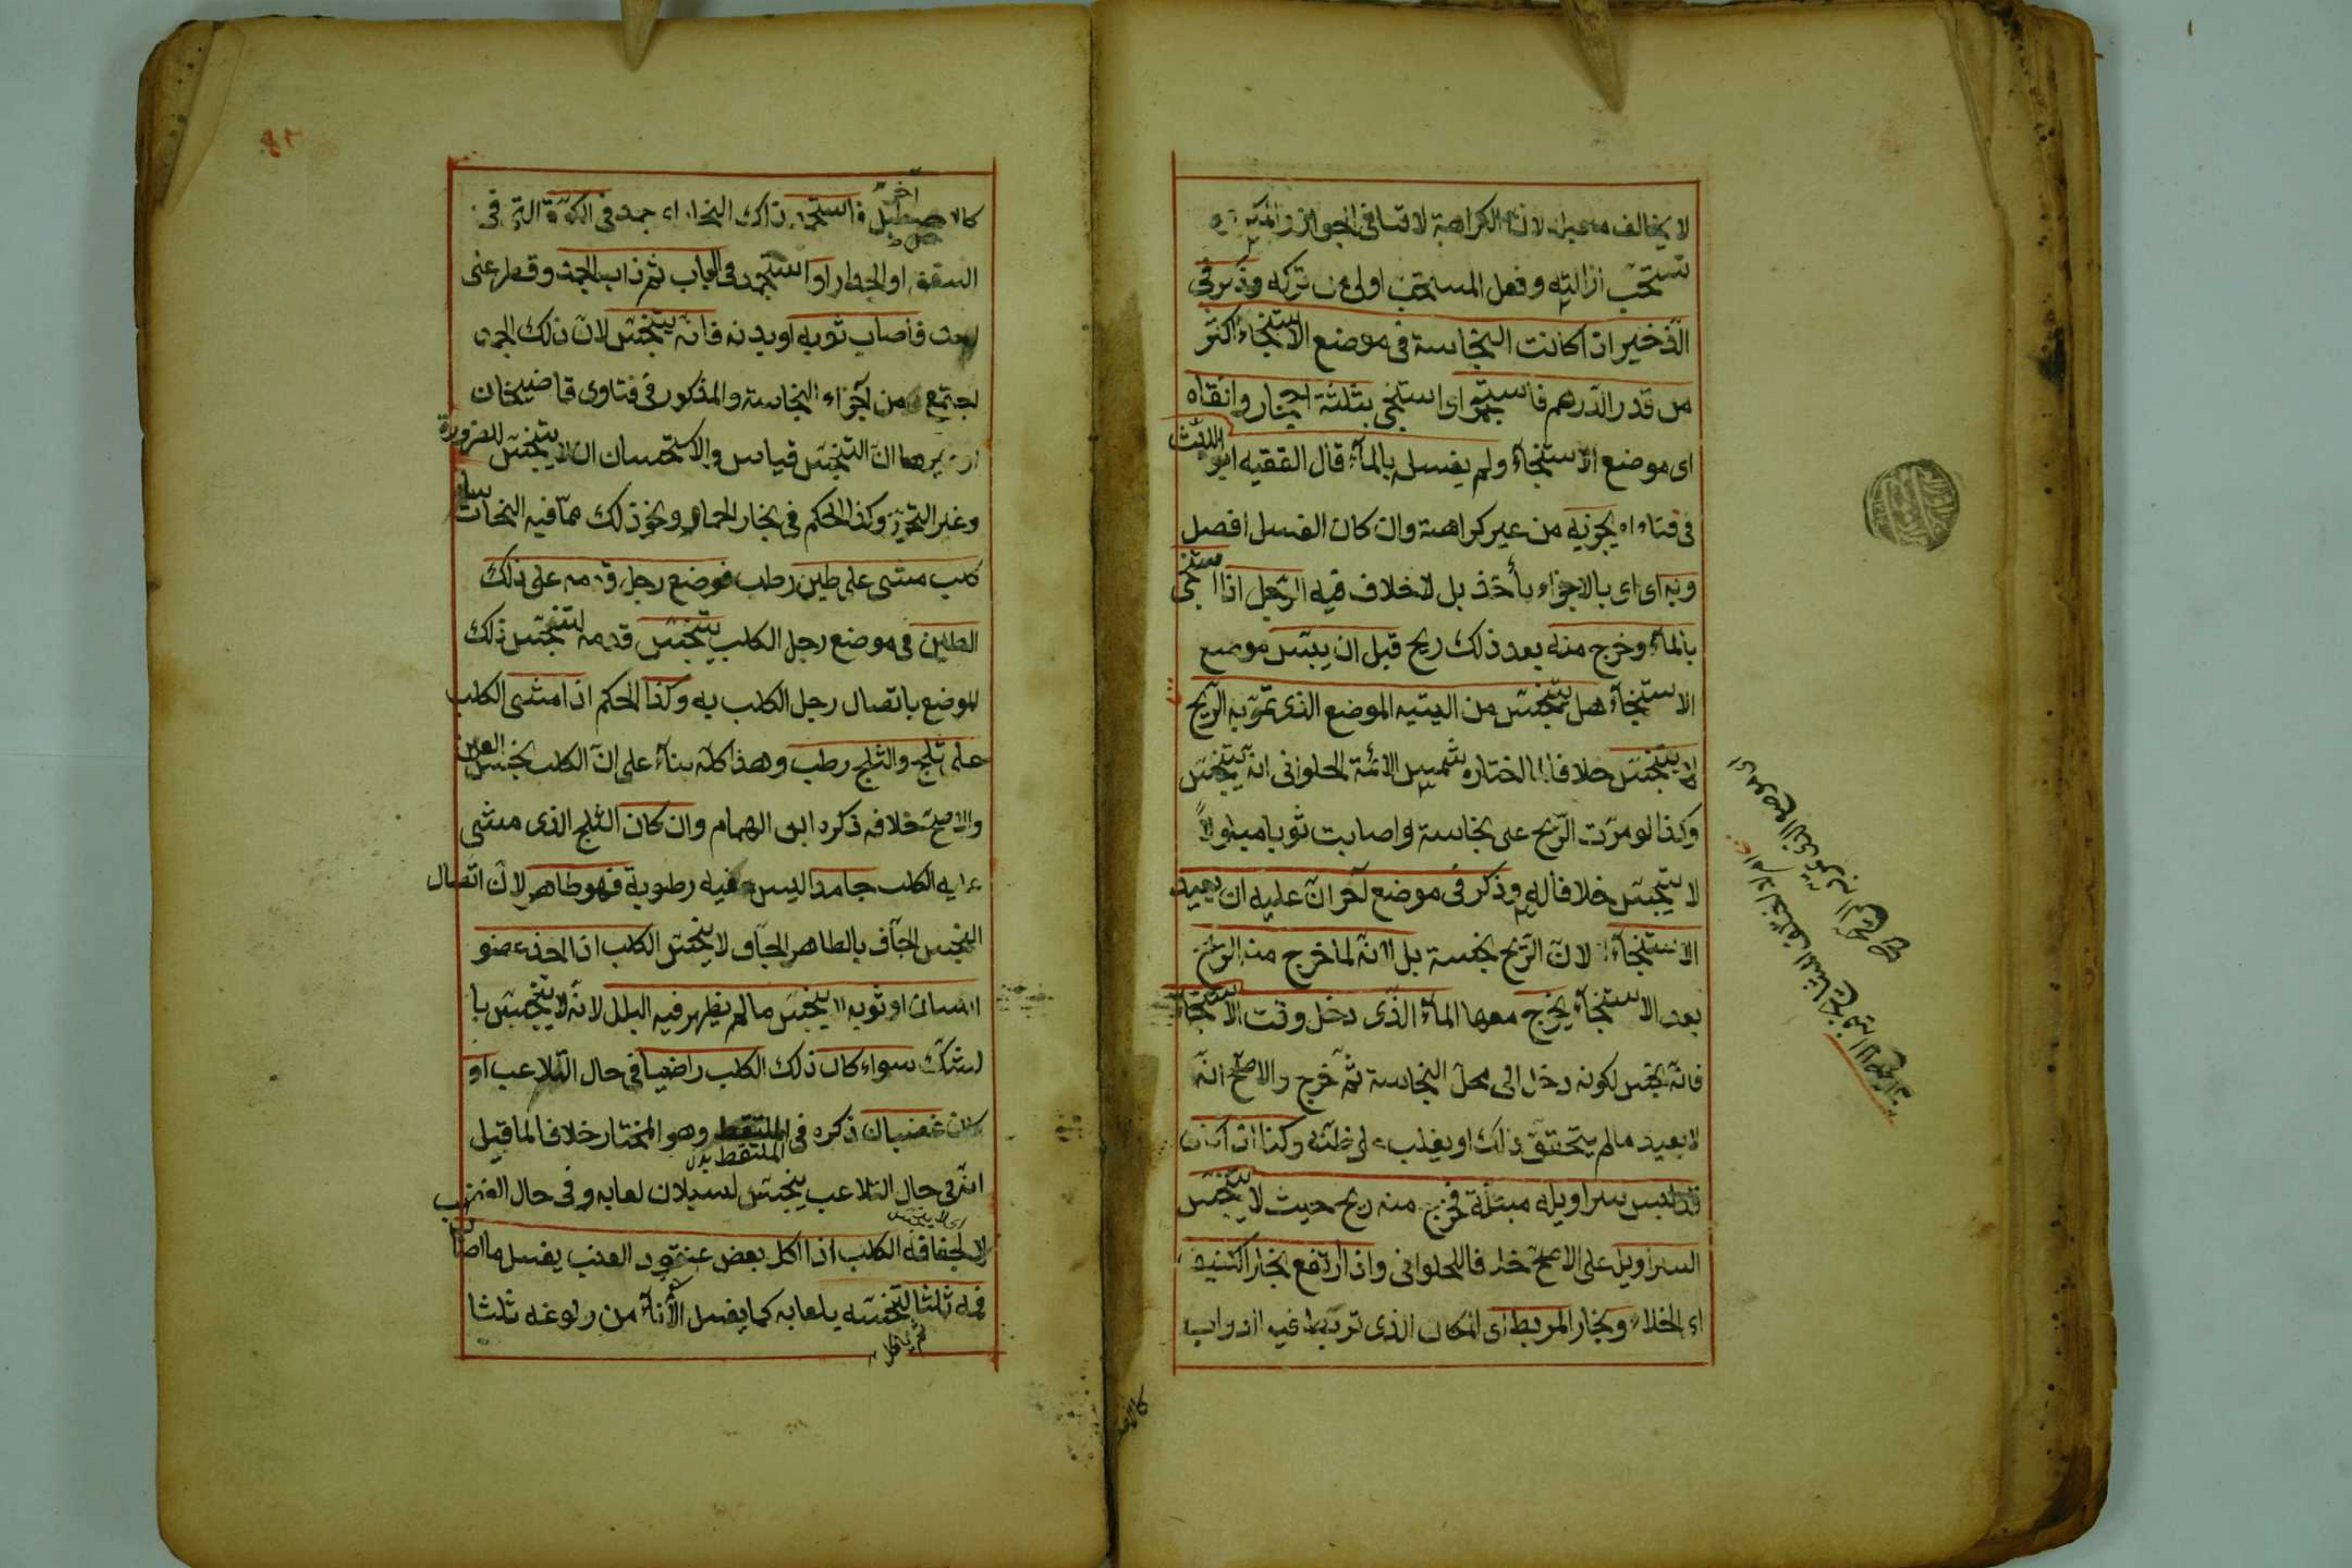 لا يخالف ما عبر لان الكراهة لا تنافى الجواز
تستحب ازالته وفعل المستحب اولى من تركه وذكر فى
الذخير اذا كانت النجاسة فى موضع الاستنجاء اكثر
من قدر الدرهم فاستجمر اى استنجى بثلثة احجار وانقاه
اى موضع الاستنجاء ولم يغسله بالماء قال الفقيه ابو الليث
فى فتاواه يجزيه من غير كراهة وان كان الغسل افضل
وبه اى اى بالاجزاء يأخذ بل لا خلاف فيه الرجل اذا استنجى
بالماء وخرج منه بعد ذلك ريح قبل ان ييبس موضع
الاستنجاء هل يتنجس من اليتيه الموضع الذى تمر به الريح
لا يتنجس خلافا لما اختاره شمس الائمة الحلوانى انه يتنجس
وكذا لو مرت الريح على نجاسة واصابت ثوبا مبلولاً
لا يتنجس خلافا له وذكر فى موضع آخر ان عليه ان يعيد
الاستنجاء لا لان الريح نجسة بل لانه لما خرج منه الريح
بعد الاستنجاء يخرج معها الماء الذى دخل وقت الاستنجاء
فانه نجس لكونه دخل الى محل النجاسة ثم خرج والاصح انه
لا يعيد ما لم يتحقق ذلك او يغلب على ظنه وكذا اذا كان
قد لبس سراويله مبتلة فخرج منه ريح حيث لا يتنجس
السراويل على الاصح خلافا للحلوانى واذا ارتفع بخار الكنيف
اى الخلاء وبخار المربط اى المكان الذى تربط فيه الدواب
كالاصطبل
كالاصطبل فاستجمد ذاك البخار اى جمد فى الكوة التى فى
السقف او الجدار او استجمد فى الباب ثم ذاب الجمد وقطر على
احد فاصاب ثوبه او بدنه فانه يتنجس لان ذلك الجمد
اجتمع من اجزاء النجاسة والمذكور فى فتاوى قاضيخان
وغيرها ان التنجس قياس والاستحسان ان لا يتنجس للضرورة
وعسر التحرز وكذا الحكم فى بخار الحمام ونحو ذلك مما فيه النجاسة
كلب مشى على طين رطب فوضع رجل قدمه على ذلك
الطين فى موضع رجل الكلب يتنجس قدمه لتنجس ذلك
الموضع باتصال رجل الكلب به وكذا الحكم اذا مشى الكلب
على ثلج والثلج رطب وهذا كله بناء على ان الكلب نجس العين
والاصح خلافه ذكره ابن الهمام وان كان الثلج الذى مشى
عليه الكلب جامدا ليس فيه رطوبة فهو طاهر لان اتصال
النجس الجاف بالطاهر الجاف لا ينجس الكلب اذا اخذ عضو
انسان او ثوبه لا يتنجس ما لم يظهر فيه البلل لانه لا يتنجس با
لشك سواء كان ذلك الكلب راضيا فى حال التلاعب او
كان غضبان ذكره فى الملتقط وهو المختار خلافا لما قيل
الملتقط بدل
انه فى حال التلاعب ينجس لسيلان لعابه وفى حال الغضب
اى لا يتنجس
لا لجفافه الكلب اذا اكل بعض عنقود العنب يغسل ما اصاب
فمه ثلثا لتنجسه بلعابه كما يغسل الاناء من ولوغه ثلثا
ثم يؤكل